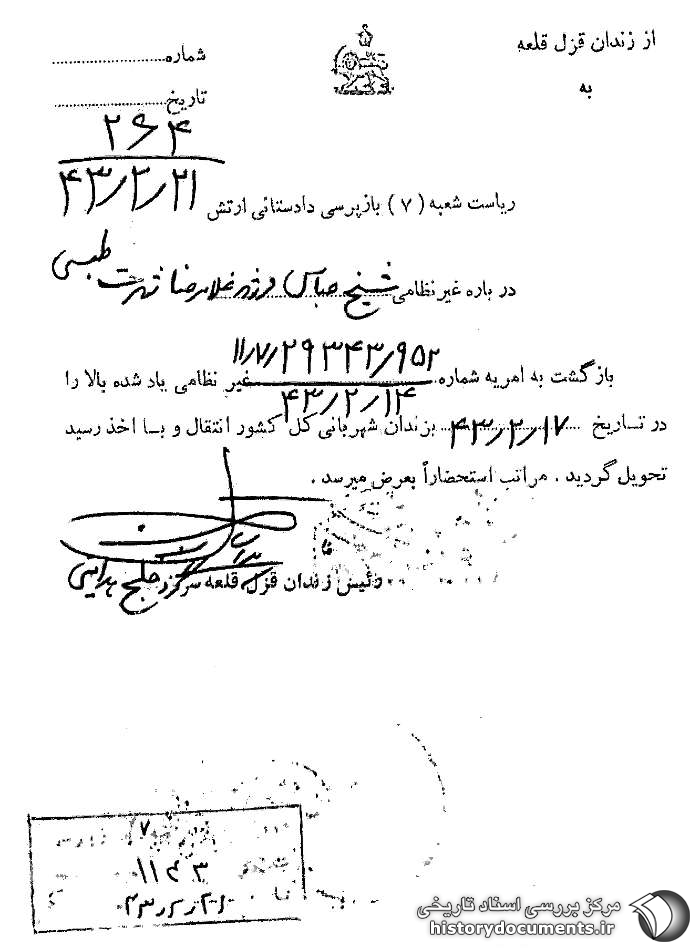 از زندان قزل قلعه
به
شماره
تاریخ
۲۶۴
۴۳/۲/۲۱
ریاست شعبه ( ۷ ) بازپرسی دادستانی ارتش
در باره غیر نظامی شیخ عباس فرزند غلامرضا شهرت طبسی
بازگشت به امریه شماره ۱۱/۷/۲۹۳۴۳/۹۵۲ غیر نظامی یاد شده بالا را
۴۳/۲/۱۴
در تاریخ ۴۳/۲/۱۷ بزندان شهربانی کل کشور انتقال و با اخذ رسید
تحویل گردید . مراتب استحضاراً بعرض میرسد .
رئیس زندان قزل قلعه سرگرد خلج هدایتی
۷
۱۱۴۳
۴۳/۲/۲۱
مرکز بررسی اسناد تاریخی
historydocuments.ir